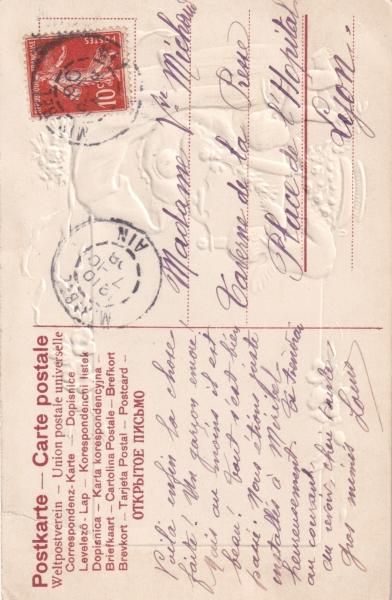 Postkarte — Carte postale
Weltpostverein — Union postale universelle
Correspondenz-Karte — Dopisnice
Levelező-Lap — Korespondenční lístek
Dopisnica — Karta korespondencyjna
Briefkaart — Cartolina Postale — Brefkort
Brevkort — Tarjeta Postal — Postcard —
ОТКРЫТОЕ ПИСЬМО
POSTES
10c
AIN
Madame Vve Michaud
Taverne de la Presse
Place de l'Hôpital
Lyon
Voici enfin la chose
faite. Un garçon encore
Mais au moins il est
beau. Tout s'est bien
passé. Nous étions
installés à
heureusement. Te tiendrai
au courant
au revoir chère